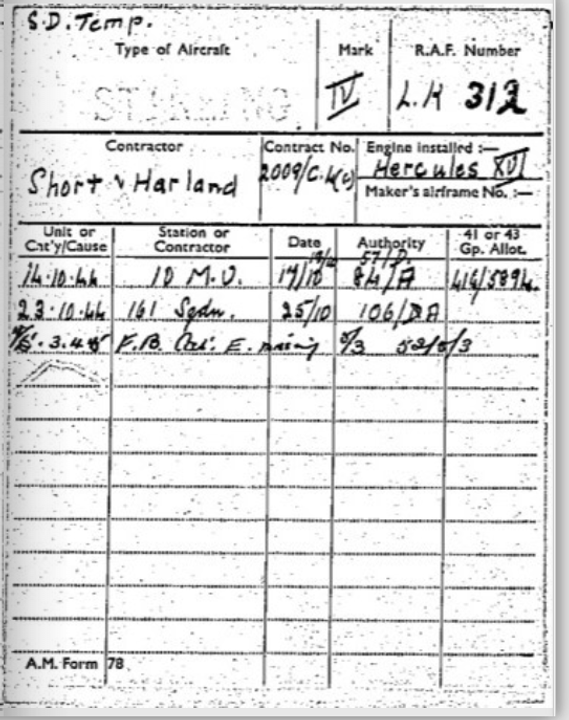 S.D. Temp.
Type of Aircraft Mark R.A.F. Number
STIRLING IV L.K 312
Contractor Contract No. Engine installed :—
Short & Harland 2009/C.4(c) Hercules XVI
Maker's airframe No. :—
Unit or Cat'y/Cause Station or Contractor Date Authority 41 or 43 Gp. Allot.
14.10.44 10 M.U. 17/10 84/A
23.10.44 161 Sqdn. 25/10 106/DA
3.45 F.B. Cat. E. missing
A.M. Form 78